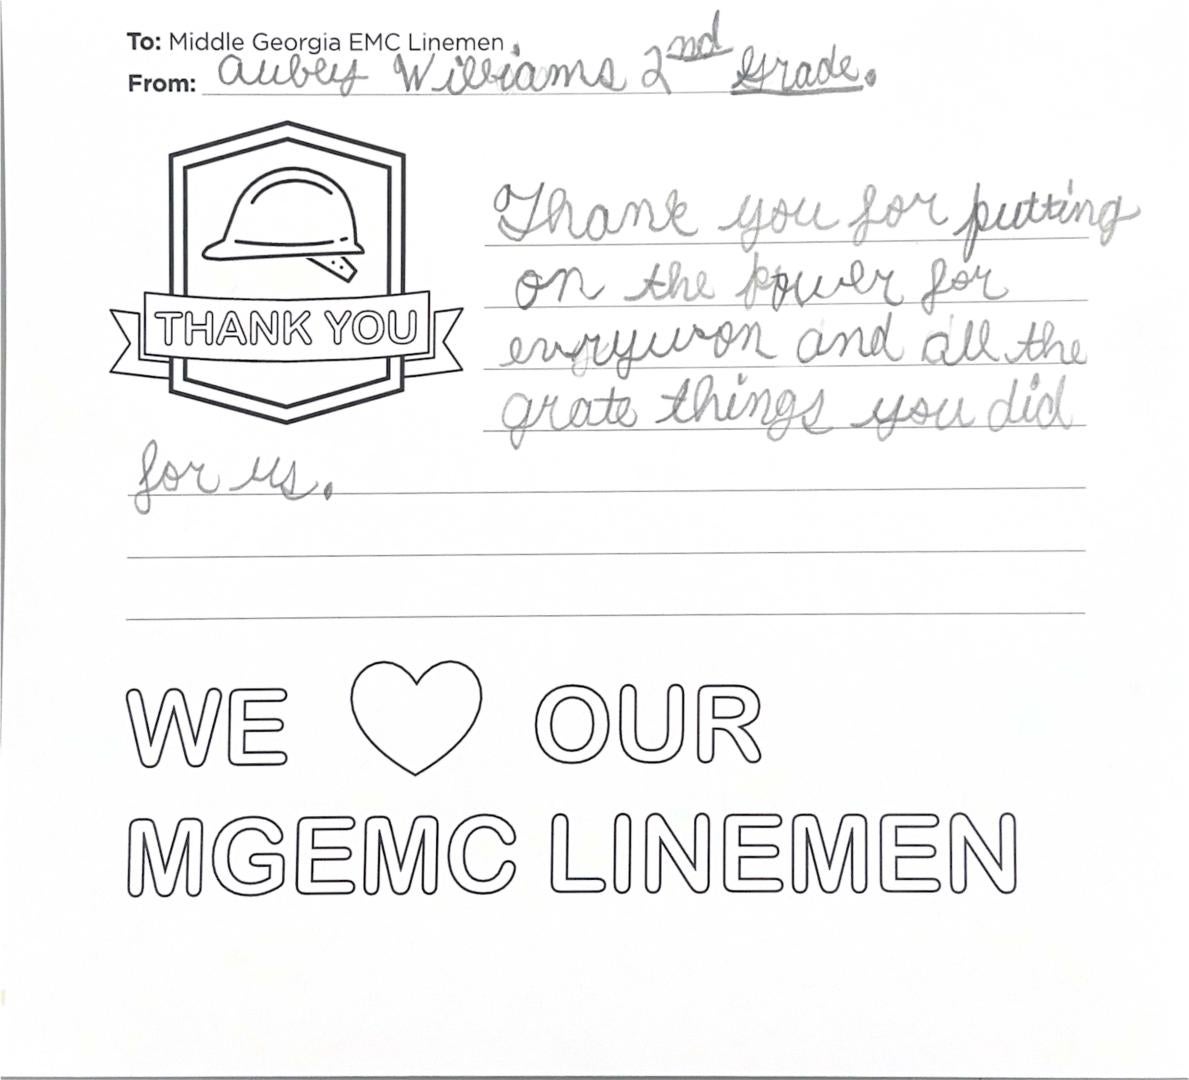 To: Middle Georgia EMC Linemen
From: Aubey Williams 2nd Grade.
THANK YOU
Thank you for putting
on the power for
evrywon and all the
grate things you did
for us.
WE OUR
MGEMC LINEMEN